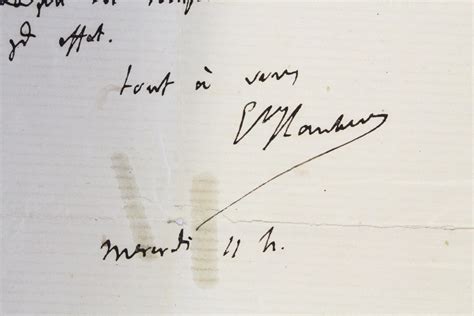 gd effet.
tout à vous
Gve Flaubert
mercredi 11 h.